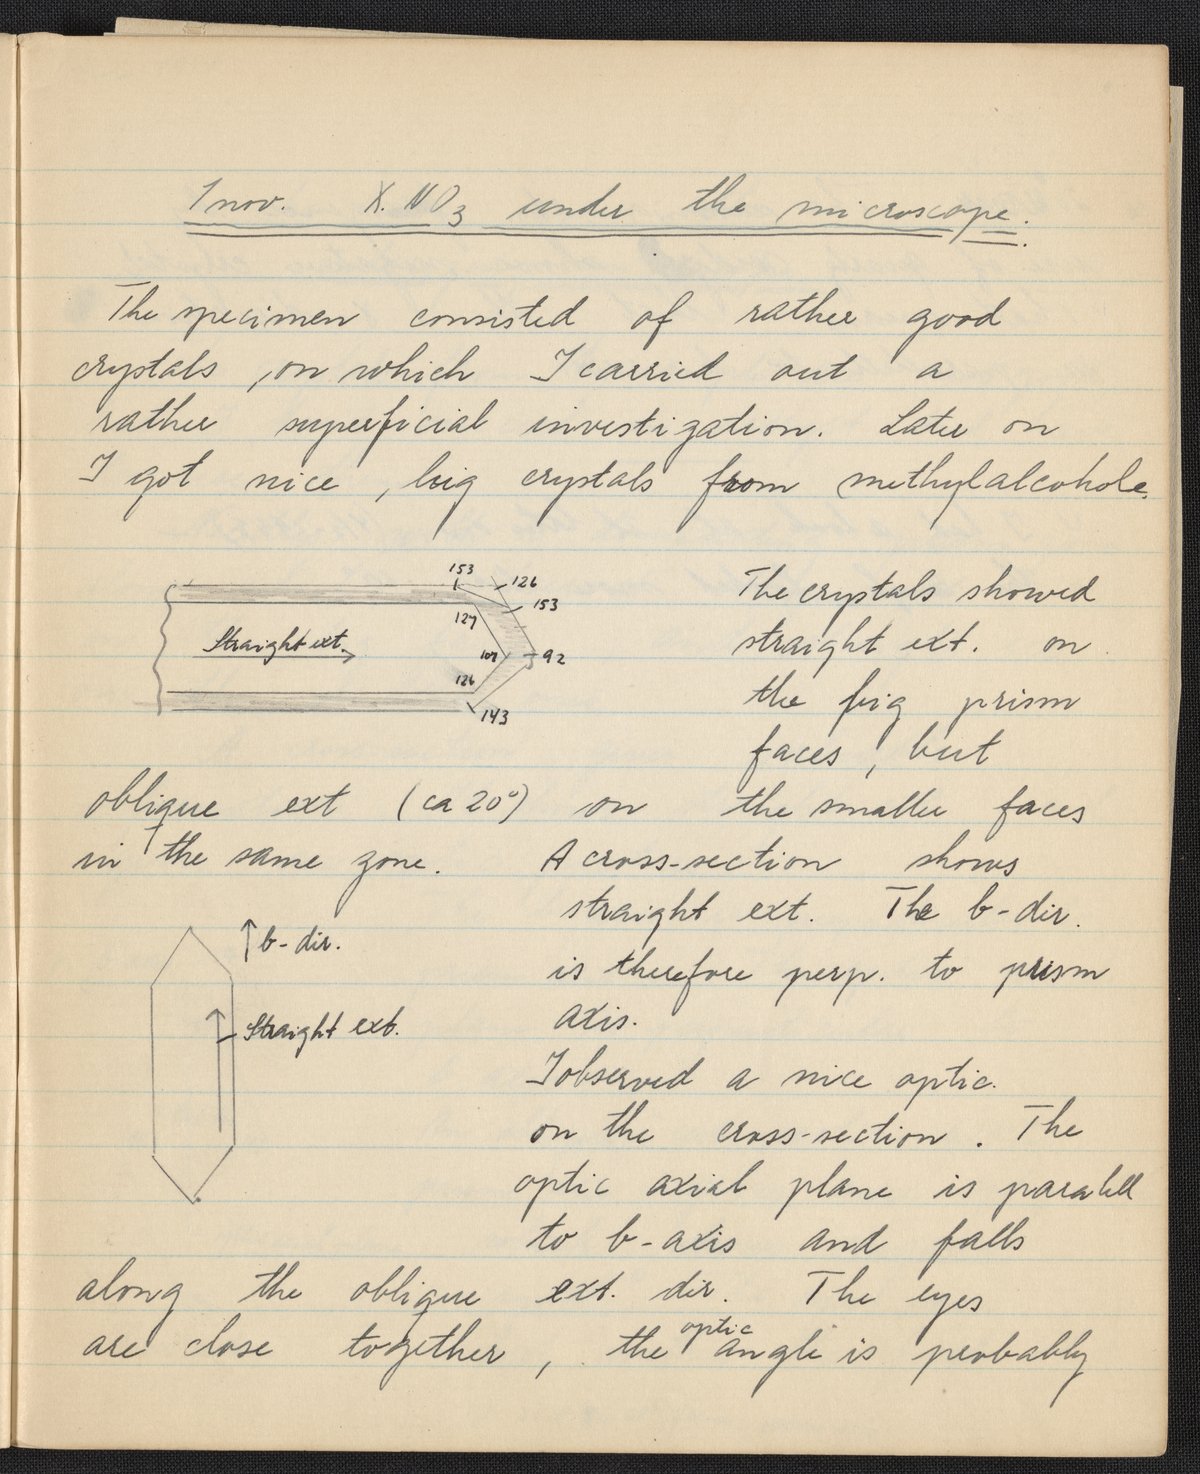 1 nov. X.NO3 under the microscope.
The specimen consisted of rather good
crystals, on which I carried out a
rather superficial investigation. Later on
I got nice, big crystals from methylalcohole.
153
126
153
127
Straight ext.
109
92
126
143
The crystals showed
straight ext. on
the big prism
faces, but
oblique ext (ca 20°) on the smaller faces
in the same zone. A cross-section shows
straight ext. The b-dir.
is therefore perp. to prism
axis.
b-dir.
Straight ext.
I observed a nice optic.
on the cross-section. The
optic axial plane is paralell
to b-axis and falls
along the oblique ext. dir. The eyes
are close together, the optic angle is probably